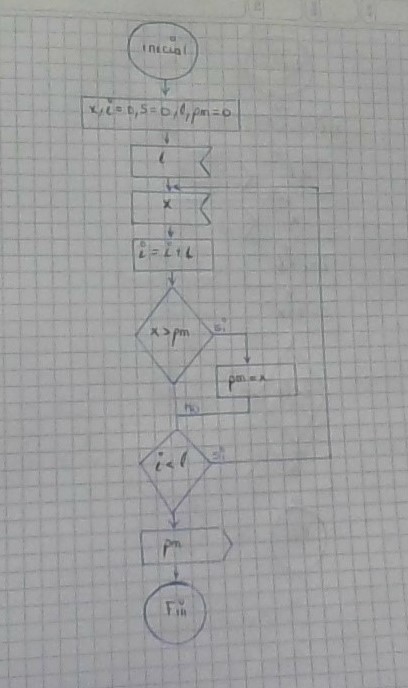 inicial
x, i=0, S=0, l, pm=0
l
x
i = i + 1
x > pm
si
pm = x
no
i < l
si
pm
Fin